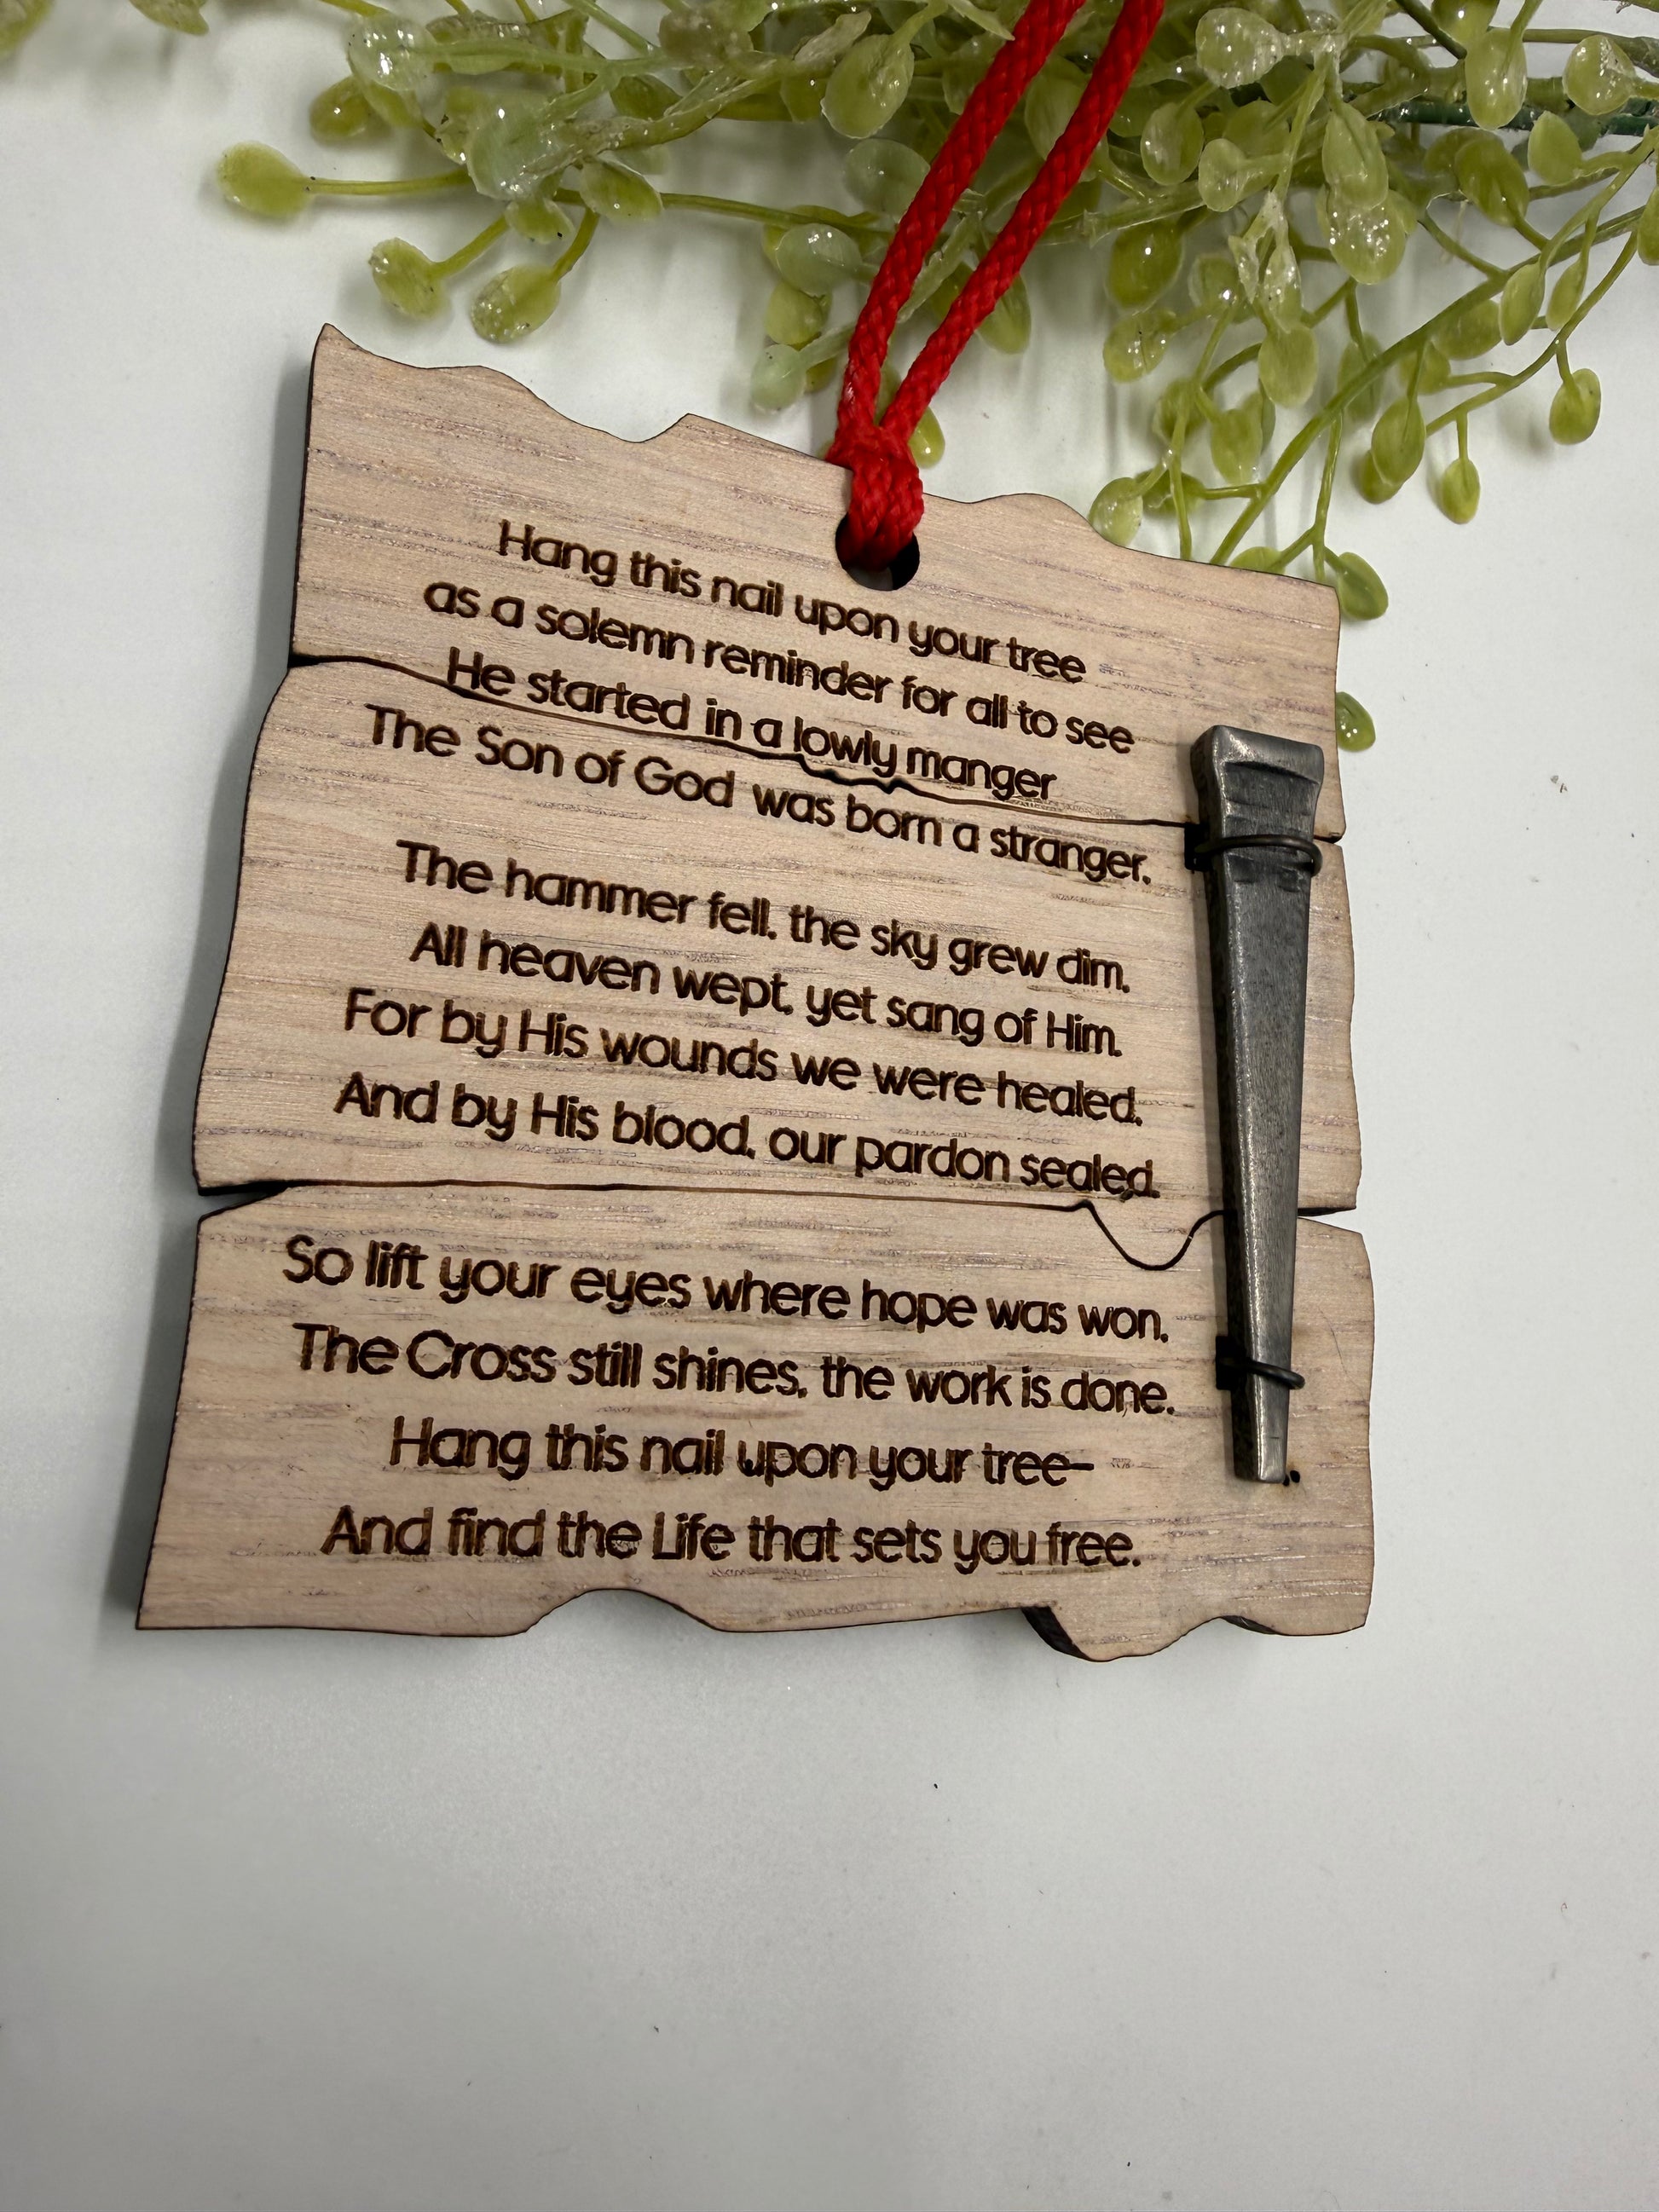 Hang this nail upon your tree
as a solemn reminder for all to see
He started in a lowly manger
The Son of God was born a stranger.
The hammer fell, the sky grew dim.
All heaven wept, yet sang of Him.
For by His wounds we were healed.
And by His blood, our pardon sealed.
So lift your eyes where hope was won.
The Cross still shines, the work is done.
Hang this nail upon your tree–
And find the Life that sets you free.